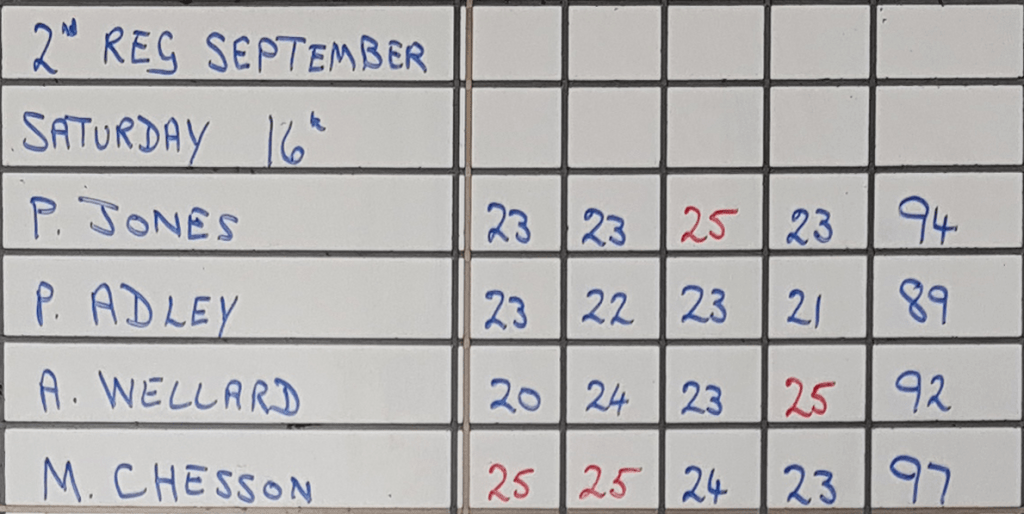 2nd REG SEPTEMBER
SATURDAY 16th
P. JONES 23 23 25 23 94
P. ADLEY 23 22 23 21 89
A. WELLARD 20 24 23 25 92
M. CHESSON 25 25 24 23 97